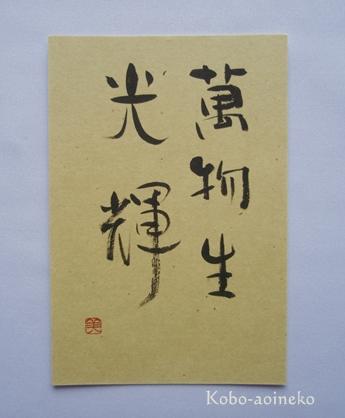 萬物生
光輝
美
Kobo-aoineko